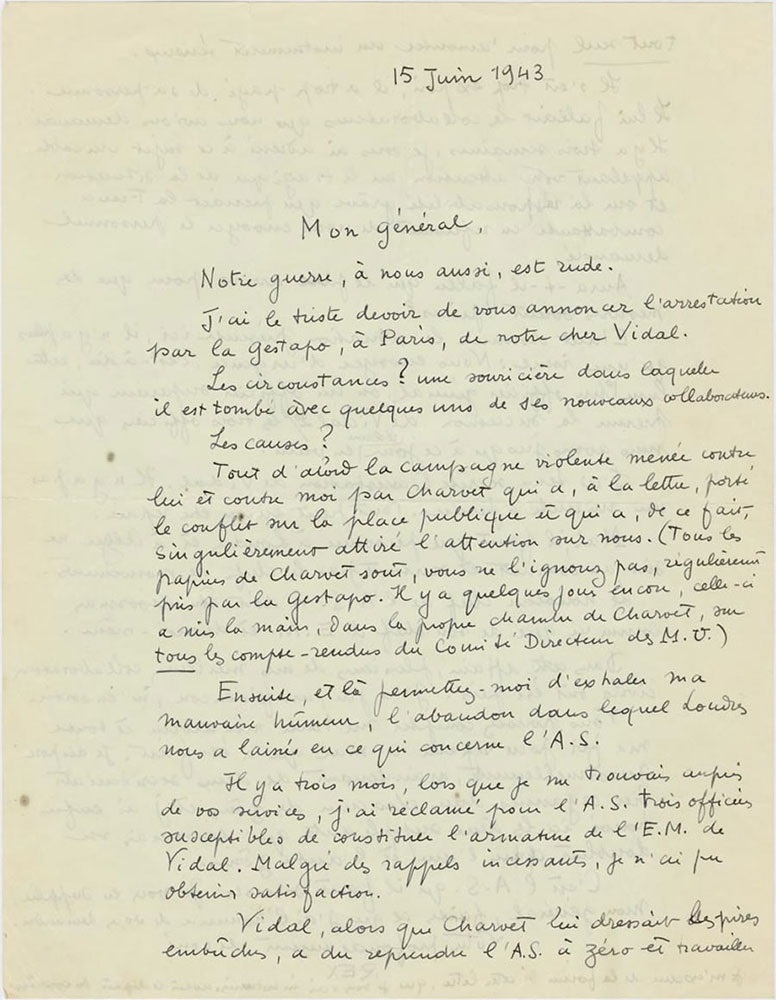 15 Juin 1943
Mon général,
Notre guerre, à nous aussi, est rude.
J'ai le triste devoir de vous annoncer l'arrestation
par la Gestapo, à Paris, de notre cher Vidal.
Les circonstances ? une souricière dans laquelle
il est tombé avec quelques uns de ses nouveaux collaborateurs.
Les causes ?
Tout d'abord la campagne violente menée contre
lui et contre moi par Charvet qui a, à la lettre, porté
le conflit sur la place publique et qui a, de ce fait,
singulièrement attiré l'attention sur nous. (Tous les
papiers de Charvet sont, vous ne l'ignorez pas, régulièrement
pris par la Gestapo. Il y a quelques jours encore, celle-ci
a mis la main, dans la propre chambre de Charvet, sur
tous les compte-rendus du Comité Directeur des M.U.)
Ensuite, et là permettez-moi d'exhaler ma
mauvaise humeur, l'abandon dans lequel Londres
nous a laissés en ce qui concerne l'A.S.
Il y a trois mois, lors que je me trouvais auprès
de vos services, j'ai réclamé pour l'A.S. trois officiers
susceptibles de constituer l'armature de l'E.M. de
Vidal. Malgré des rappels incessants, je n'ai pu
obtenir satisfaction.
Vidal, alors que Charvet lui dressait les pires
embûches, a du reprendre l'A.S. à zéro et travailler